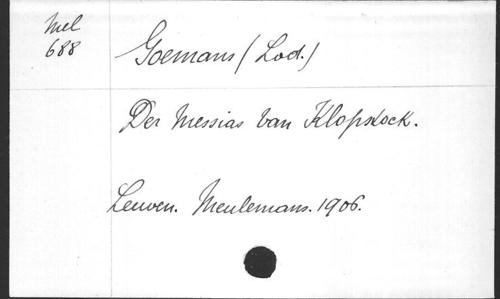 Mel
688
Goemans (Lod.)
Der Messias van Klopstock.
Leuven. Meulemans. 1906.